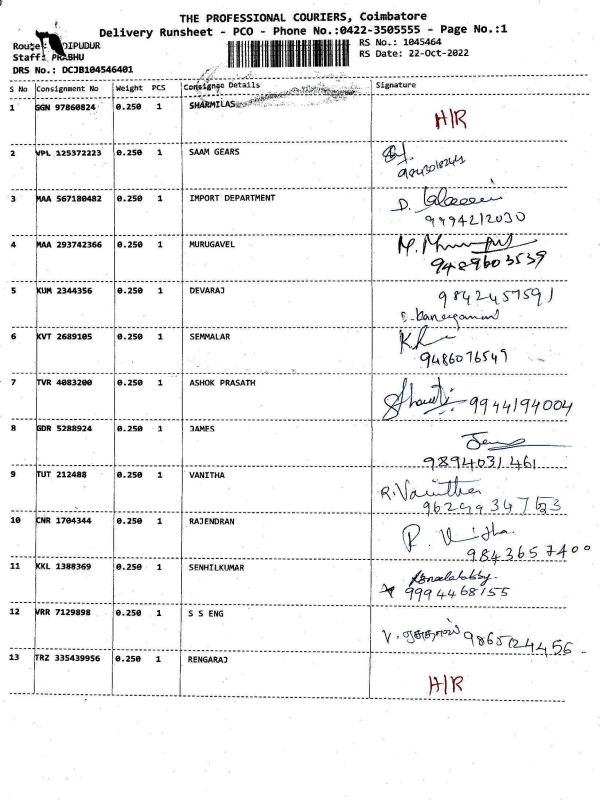 THE PROFESSIONAL COURIERS, Coimbatore
Delivery Runsheet - PCO - Phone No.:0422-3505555 - Page No.:1
Route: DIPUDUR
RS No.: 1045464
Staff: PRABHU
RS Date: 22-Oct-2022
DRS No.: DCJB104546401
S No Consignment No Weight PCS Consignee Details Signature
1 GGN 97860824 0.250 1 SHARMILAS H/R
2 VPL 125372223 0.250 1 SAAM GEARS
3 MAA 567180482 0.250 1 IMPORT DEPARTMENT D.
9994212030
4 MAA 293742366 0.250 1 MURUGAVEL M.
9489603539
5 KUM 2344356 0.250 1 DEVARAJ 9842457591
6 KVT 2689105 0.250 1 SEMMALAR
9486076549
7 TVR 4083200 0.250 1 ASHOK PRASATH 9944194004
8 GDR 5288924 0.250 1 JAMES
9894031461
9 TUT 212488 0.250 1 VANITHA R. Vanitha
10 CNR 1704344 0.250 1 RAJENDRAN
9843657400
11 KKL 1388369 0.250 1 SENHILKUMAR
9994468155
12 VRR 7129898 0.250 1 S S ENG V. 9865124456
13 TRZ 335439956 0.250 1 RENGARAJ H/R